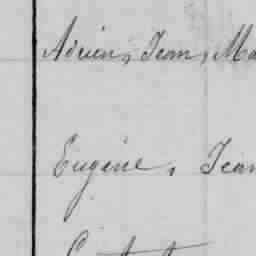 Adrien, Jean, Ma
Eugène, Jean